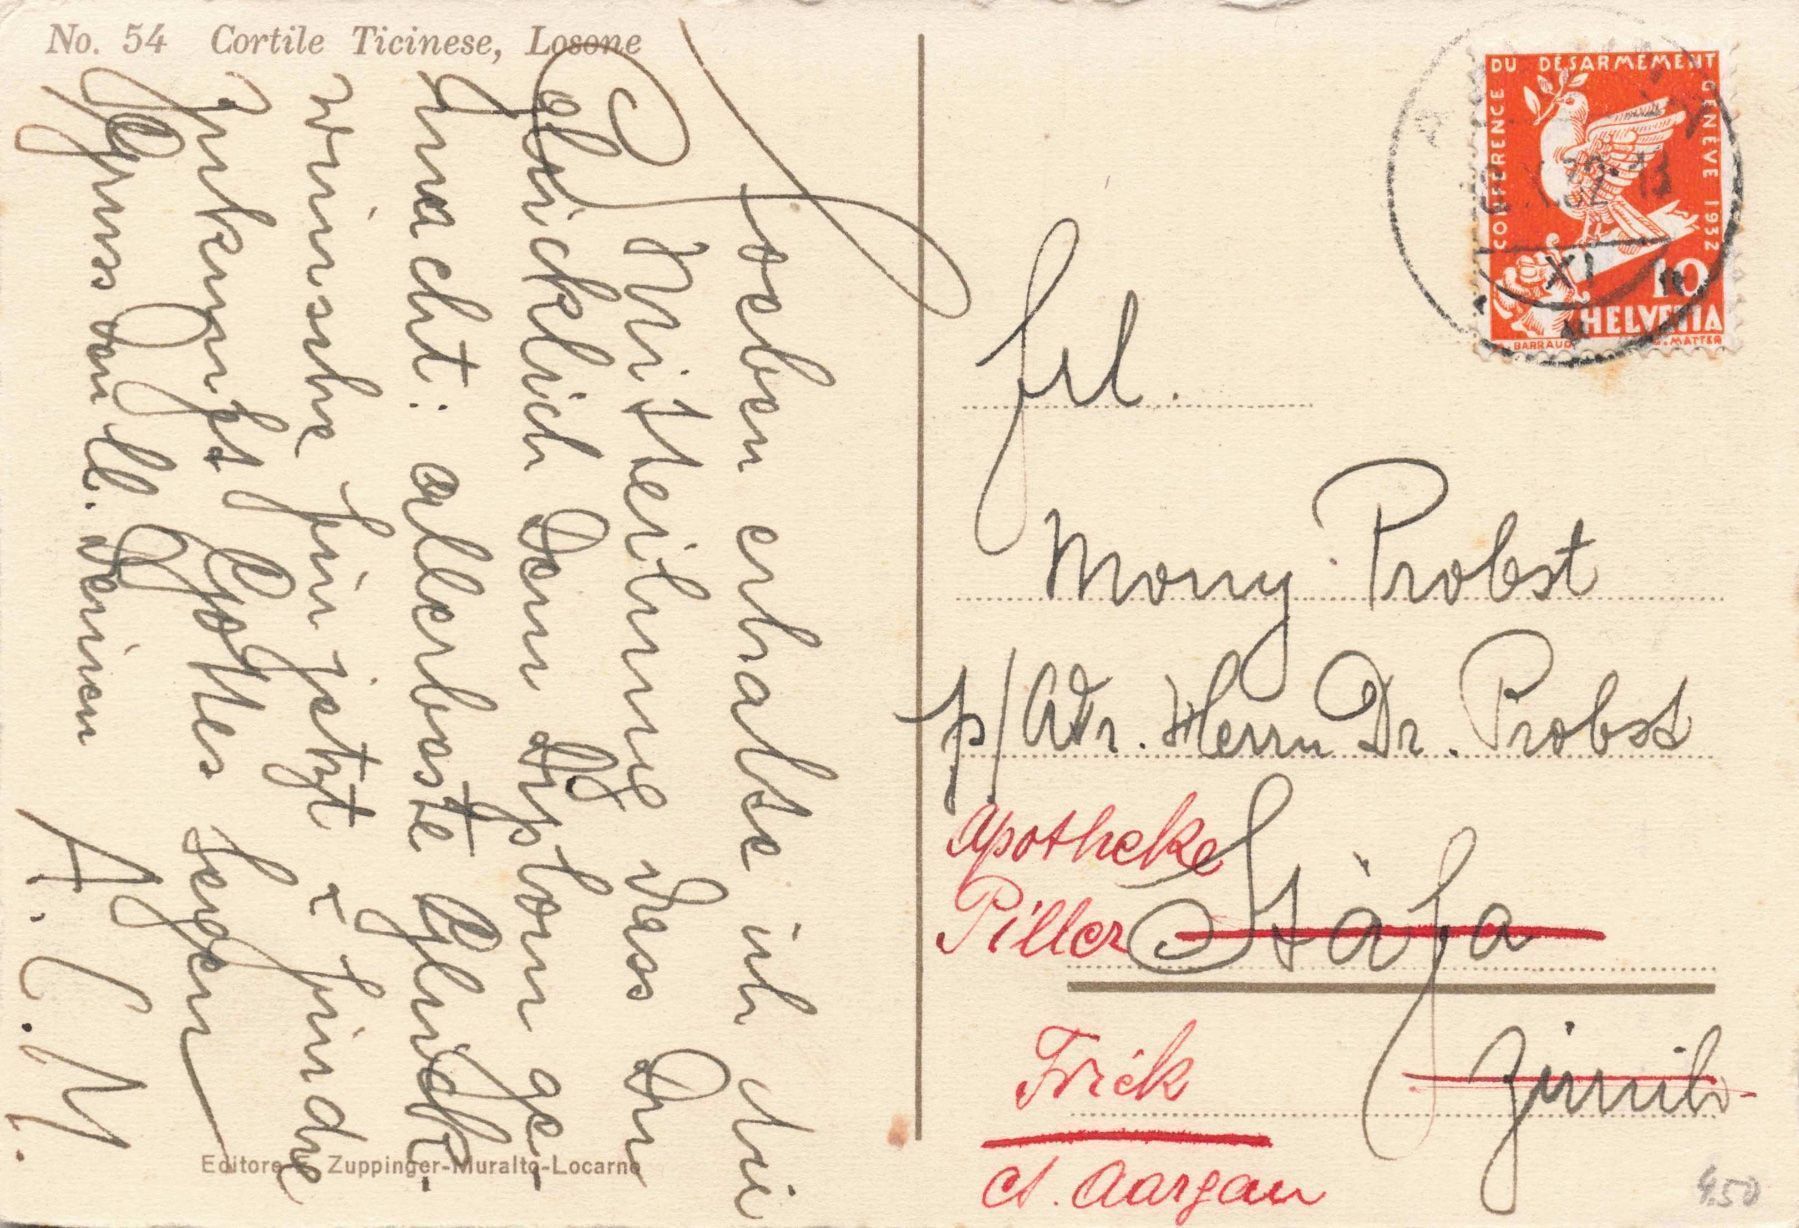 No. 54 Cortile Ticinese, Losone
Soeben erhalte ich die
Mitteilung dass Du
glücklich Dein Diplom ge-
macht: allerbeste Glück-
wünsche für jetzt & finde
Zukunft Gottes Segen
Gruss von Deinen
A. C. M.
Editore Zuppinger-Muralto-Locarno
CONFERENCE DU DESARMEMENT GENEVE 1932
X.32-13
XI
10
HELVETIA
BARRAUD
G. MATTER
Frl.
Mony Probst
p/Adr. Herrn Dr. Probst
Apotheke
Piller
Stäfa
Zürich
Frick
Ct. Aargau
4.50